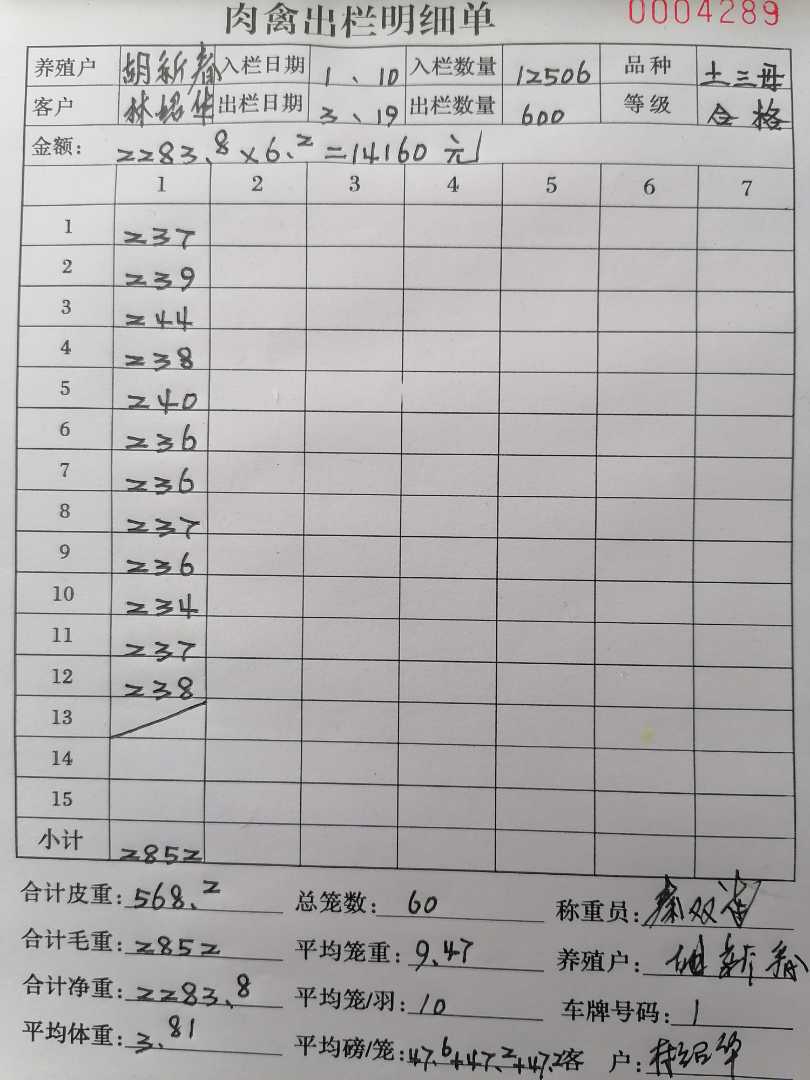 肉禽出栏明细单 0004289
养殖户 胡新春 入栏日期 1、10 入栏数量 12506 品种 土三母
客户 林绍华 出栏日期 3、19 出栏数量 600 等级 合格
金额: 2283.8×6.2=14160元
1 2 3 4 5 6 7
1 237
2 239
3 244
4 238
5 240
6 236
7 236
8 237
9 236
10 234
11 237
12 238
13
14
15
小计 2852
合计皮重: 568.2 总笼数: 60 称重员: 秦双
合计毛重: 2852 平均笼重: 9.47 养殖户: 胡新春
合计净重: 2283.8 平均笼/羽: 10 车牌号码: 1
平均体重: 3.81 平均磅/笼: 47.6+47.2+47.2 客户: 林绍华